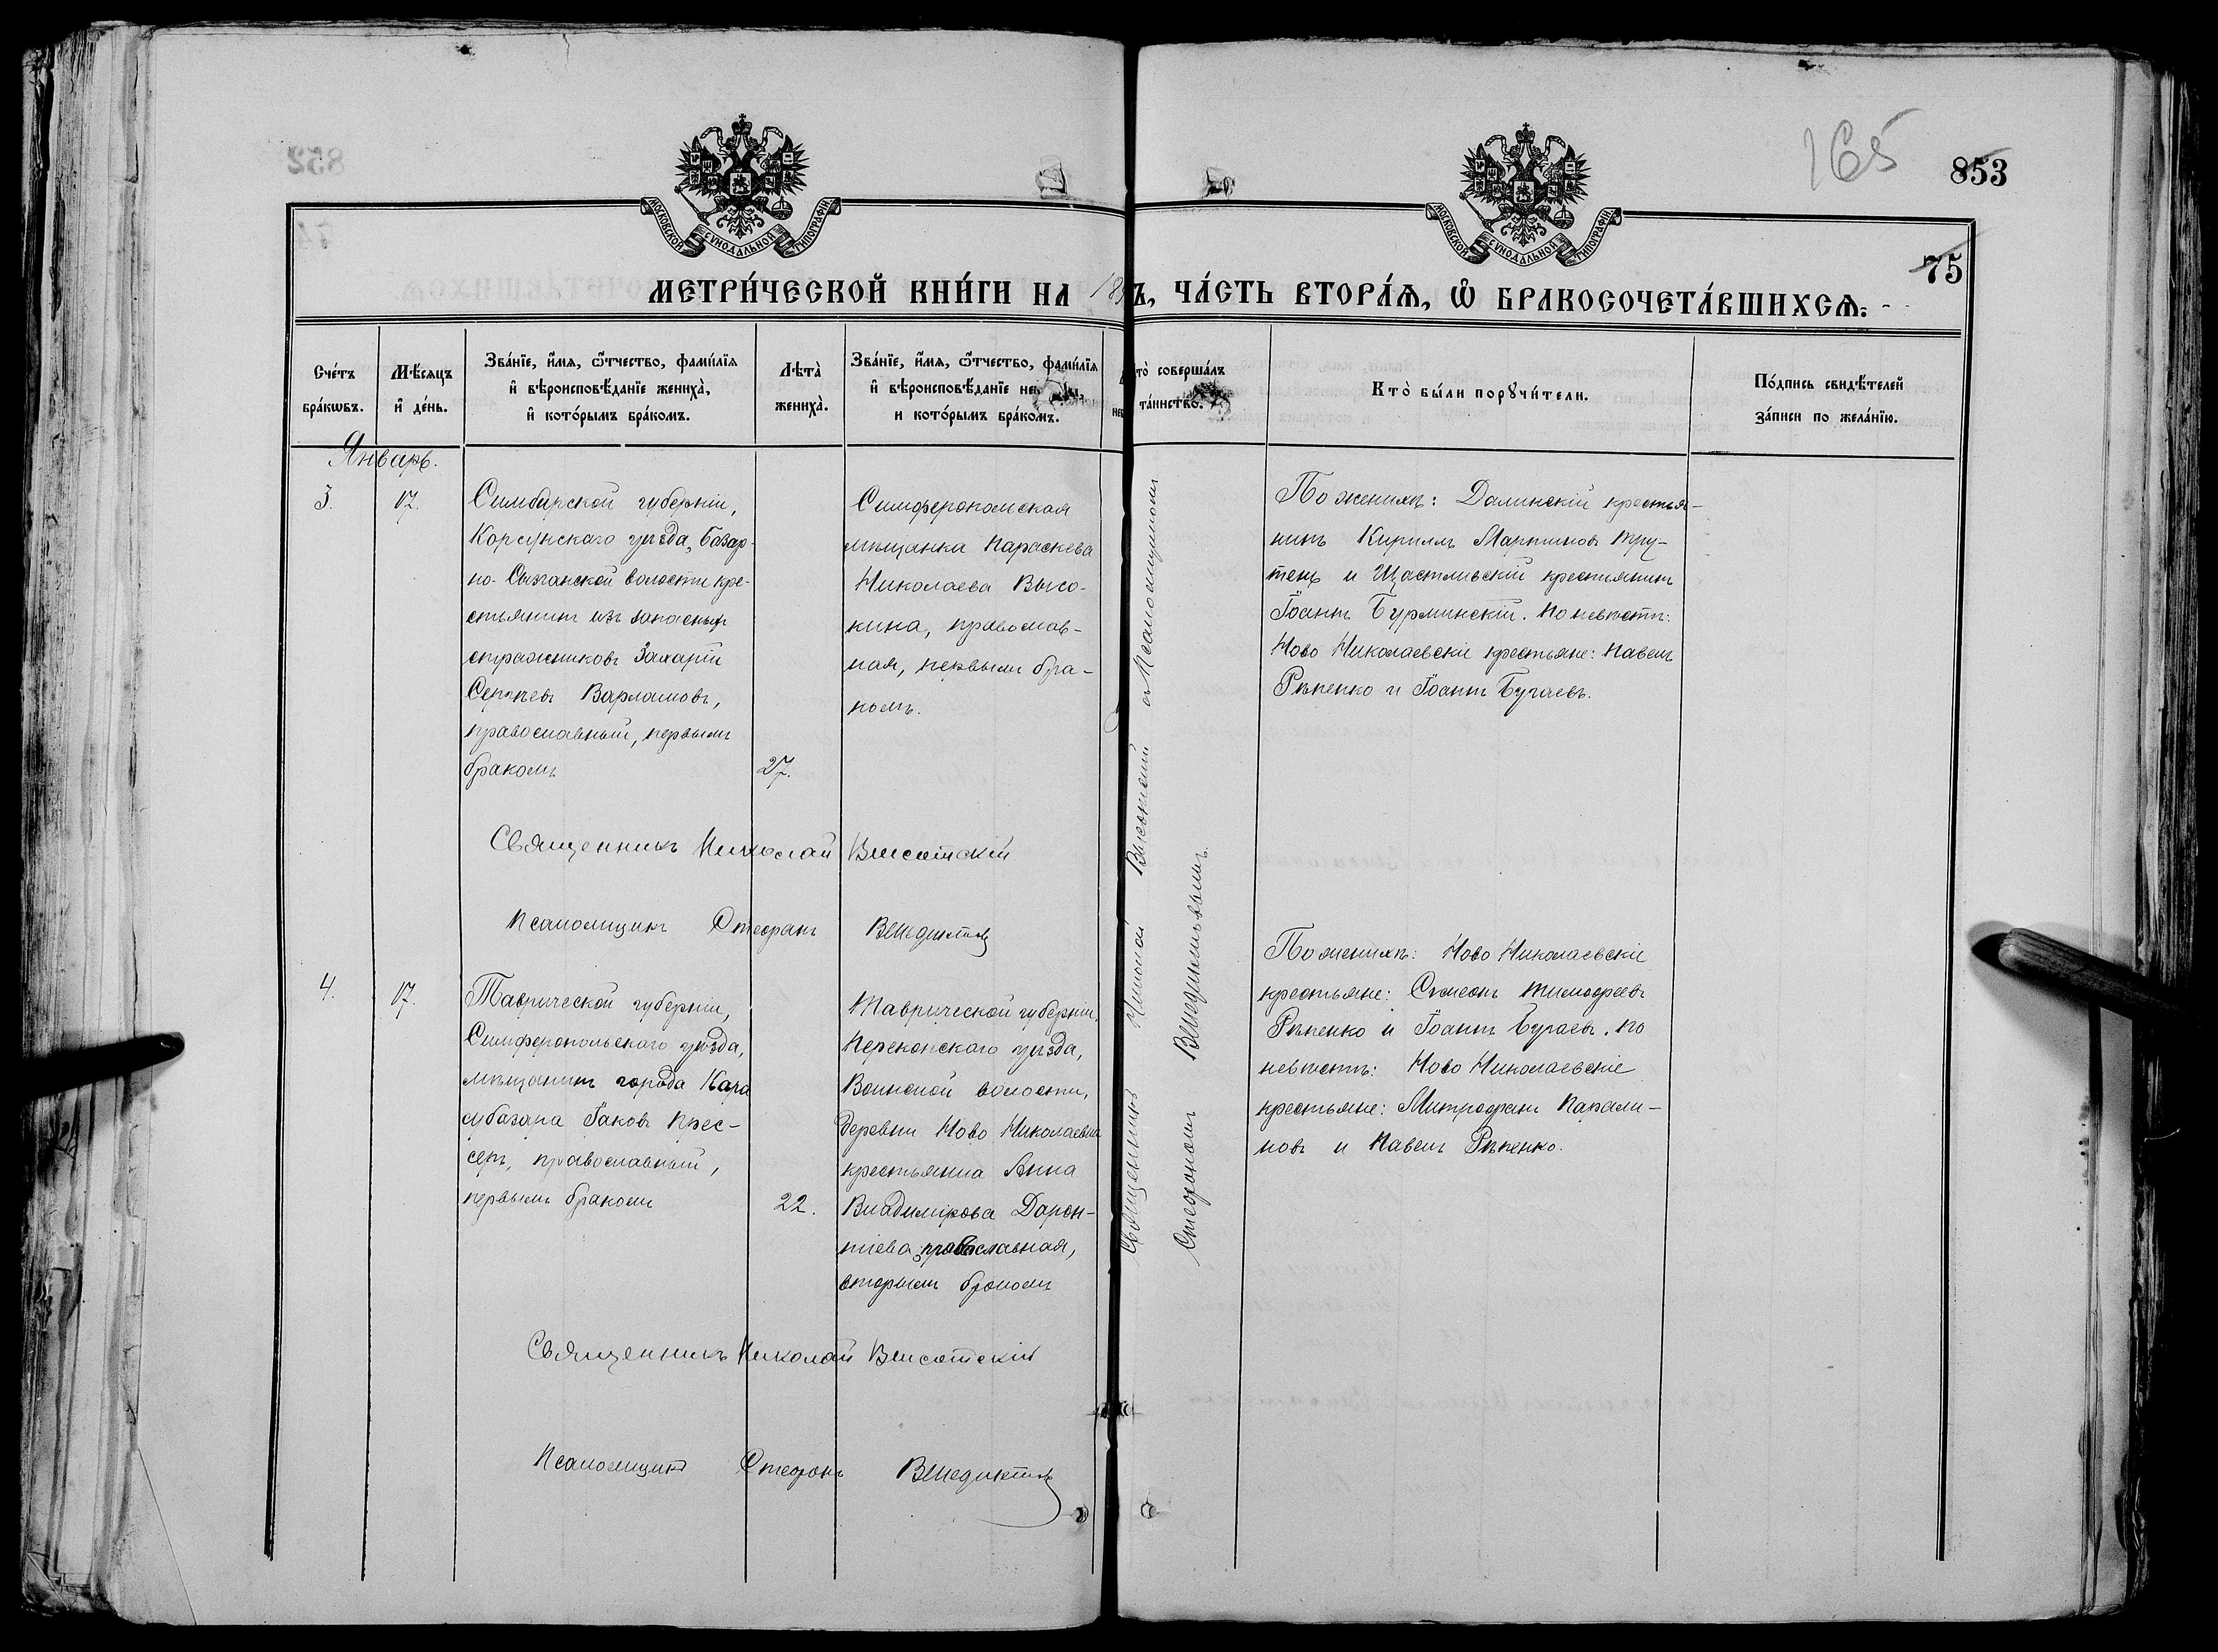 165
853
75
МОСКОВСКОЙ СѴНОДАЛЬНОЙ ТИПОГРАФІИ
МОСКОВСКОЙ СѴНОДАЛЬНОЙ ТИПОГРАФІИ
МЕТРИ́ЧЕСКОЙ КНИ́ГИ НА 18 Ъ, ЧА́СТЬ ВТОРА́Ѧ, Ѽ БРАКОСОЧЕТА́ВШИХСѦ.
Сче́тъ бра́кѡвъ.
Мѣ́сяцъ и҆ де́нь.
Зва́нїе, и҆́мя, ѻ҆́тчество, фами́лїя и҆ вѣроисповѣ́данїе жениха̀, и҆ кото́рымъ бра́комъ.
Лѣта̀ жениха̀.
Зва́нїе, и҆́мя, ѻ҆́тчество, фами́лїя и҆ вѣроисповѣ́данїе и кото́рымъ бра́комъ.
то̀ соверша́лъ та́инство.
Кто̀ бы́ли порꙋчи́тели.
По́дпись свидѣ́телей за́писи по жела́нїю.
Январь.
3.
17.
Симбирской губерніи,
Корсунскаго уѣзда, Базар-
но-Сызганской волости кре-
стьянинъ изъ запасныхъ
стражниковъ Захарій
Сергѣевъ Варламовъ,
православный, первымъ
бракомъ
27.
Симферопольская
мѣщанка Параскева
Николаева Высо-
кина, православ-
ная, первымъ бра-
комъ.
Священникъ Николай Высотскій съ Псаломщикомъ
Стефаномъ Венедиктовымъ.
По женихѣ: Далинскій крестья-
нинъ Кириллъ Мартиновъ Тру-
тень и Щастливскій крестьянинъ
Іоаннъ Бурлинскій. По невѣстѣ:
Ново Николаевскіе крестьяне: Павелъ
Рѣпенко и Іоаннъ Бугаевъ.
Священникъ Николай Высотскій
Псаломщикъ Стефанъ Венедиктовъ
4.
17.
Таврической губерніи,
Симферопольскаго уѣзда,
мѣщанинъ города Кара
субазара Іаковъ Прес-
серъ, православный,
первымъ бракомъ
22.
Таврической губерніи,
Перекопскаго уѣзда,
Воинской волости,
деревни Ново Николаевки
крестьянка Анна
Владимірова Дарон-
кіева, православная,
вторымъ бракомъ
По женихѣ: Ново Николаевскіе
крестьяне: Сѵмеонъ Тимофеевъ
Рѣпенко и Іоаннъ Бугаевъ. По
невѣстѣ: Ново Николаевскіе
крестьяне: Митрофанъ Парали-
новъ и Павелъ Рѣпенко.
Священникъ Николай Высотскій
Псаломщикъ Стефанъ Венедиктовъ